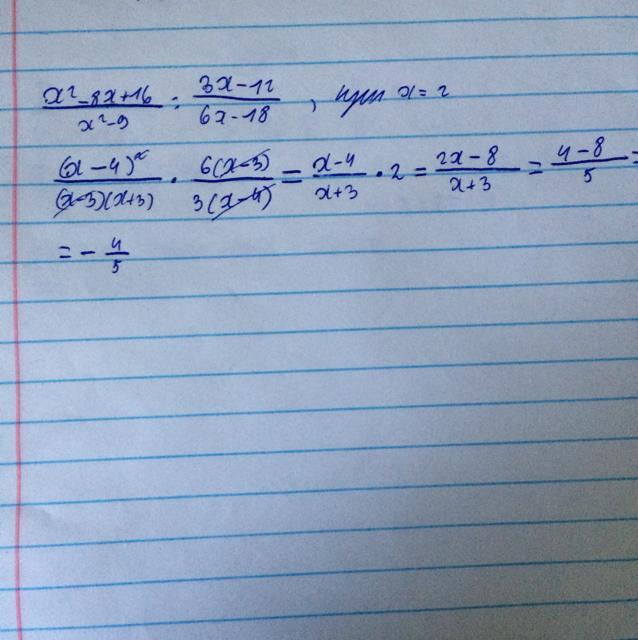 x²-8x+16/x²-9 : 3x-12/6x-18, при x=2
(x-4)²/(x-3)(x+3) · 6(x-3)/3(x-4) = x-4/x+3 · 2 = 2x-8/x+3 = 4-8/5 =
= -4/5